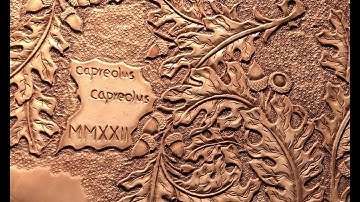 capreolus
capreolus
MMXXII